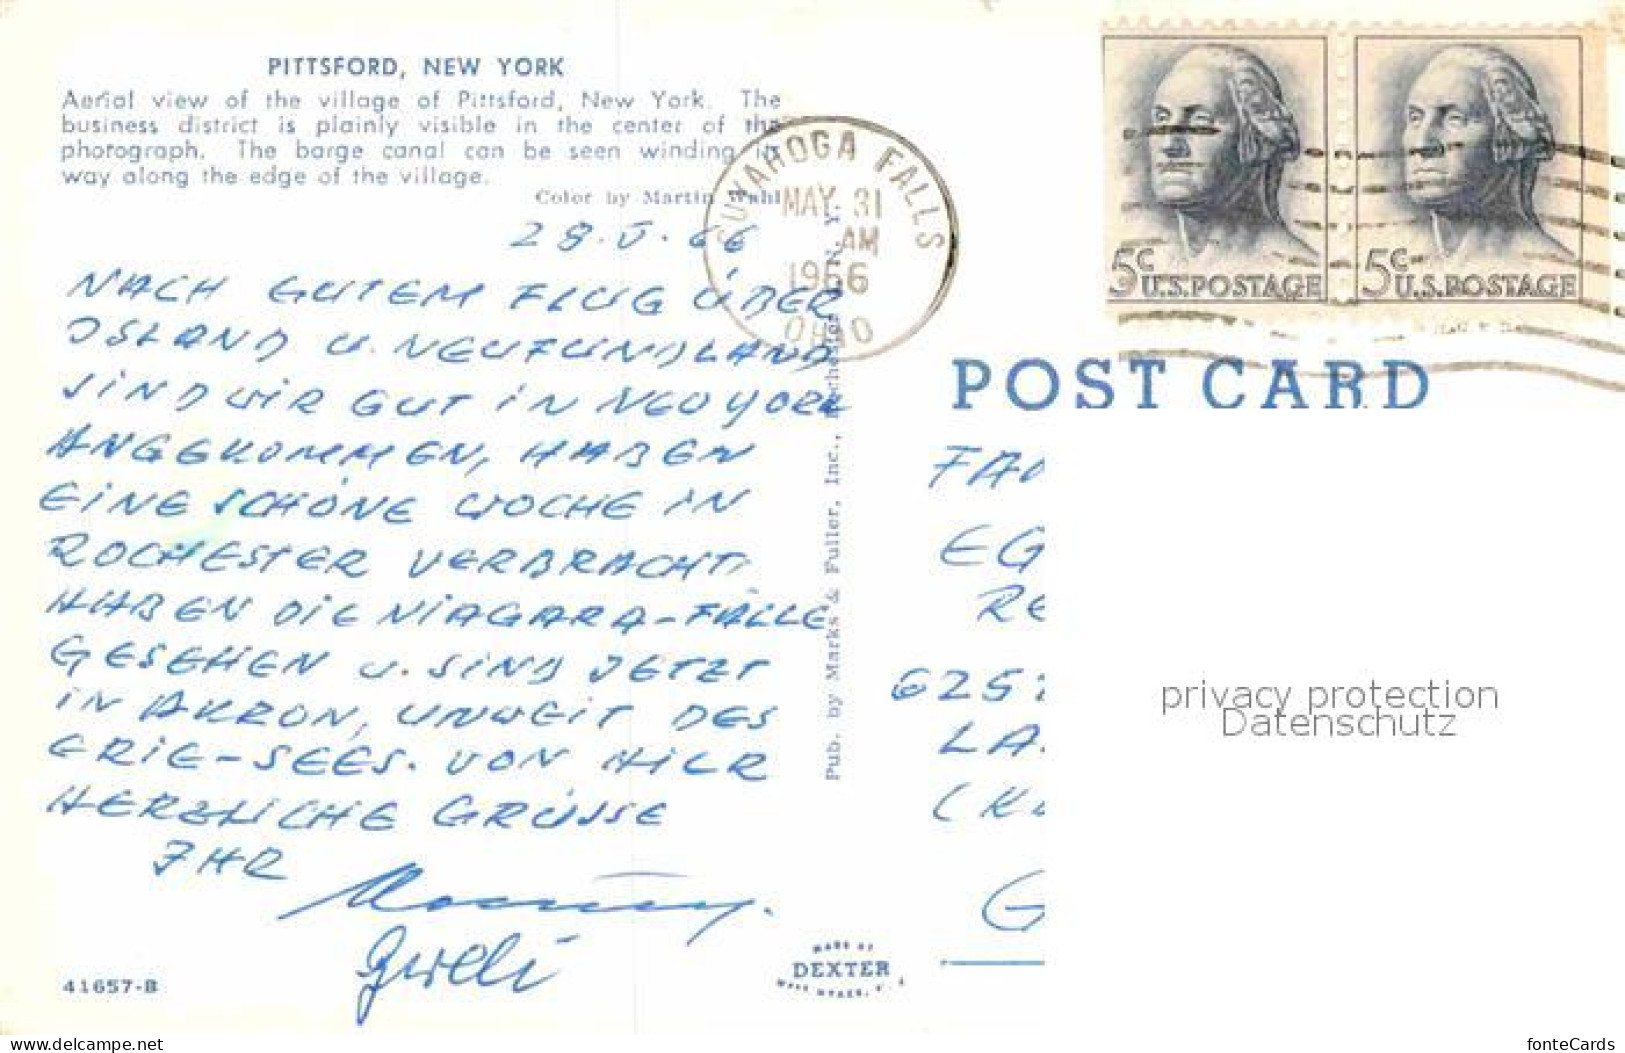 PITTSFORD, NEW YORK
Aerial view of the village of Pittsford, New York. The
business district is plainly visible in the center of the
photograph. The barge canal can be seen winding
way along the edge of the village.
Color by Martin Wahl
28.5.66
NACH GUTEM FLUG ÜBER
ISLAND U. NEUFUNDLAND
SIND WIR GUT IN NEW YORK
ANGEKOMMEN, HABEN
EINE SCHÖNE WOCHE IN
ROCHESTER VERBRACHT,
HABEN DIE NIAGARA-FÄLLE
GESEHEN U. SIND JETZT
IN AKRON, UNWEIT DES
ERIE-SEES. VON HIER
HERZLICHE GRÜSSE
IHR
41657-B
CUYAHOGA FALLS
MAY 31
AM
1966
OHIO
Pub. by Marks & Fuller, Inc., Rochester N. Y.
MADE BY
DEXTER
WEST NYACK, N. Y.
5c U.S.POSTAGE
5c U.S.POSTAGE
POST CARD
FA
EG
RE
625
LA
(K
G
privacy protection
Datenschutz
www.delcampe.net
fonteCards